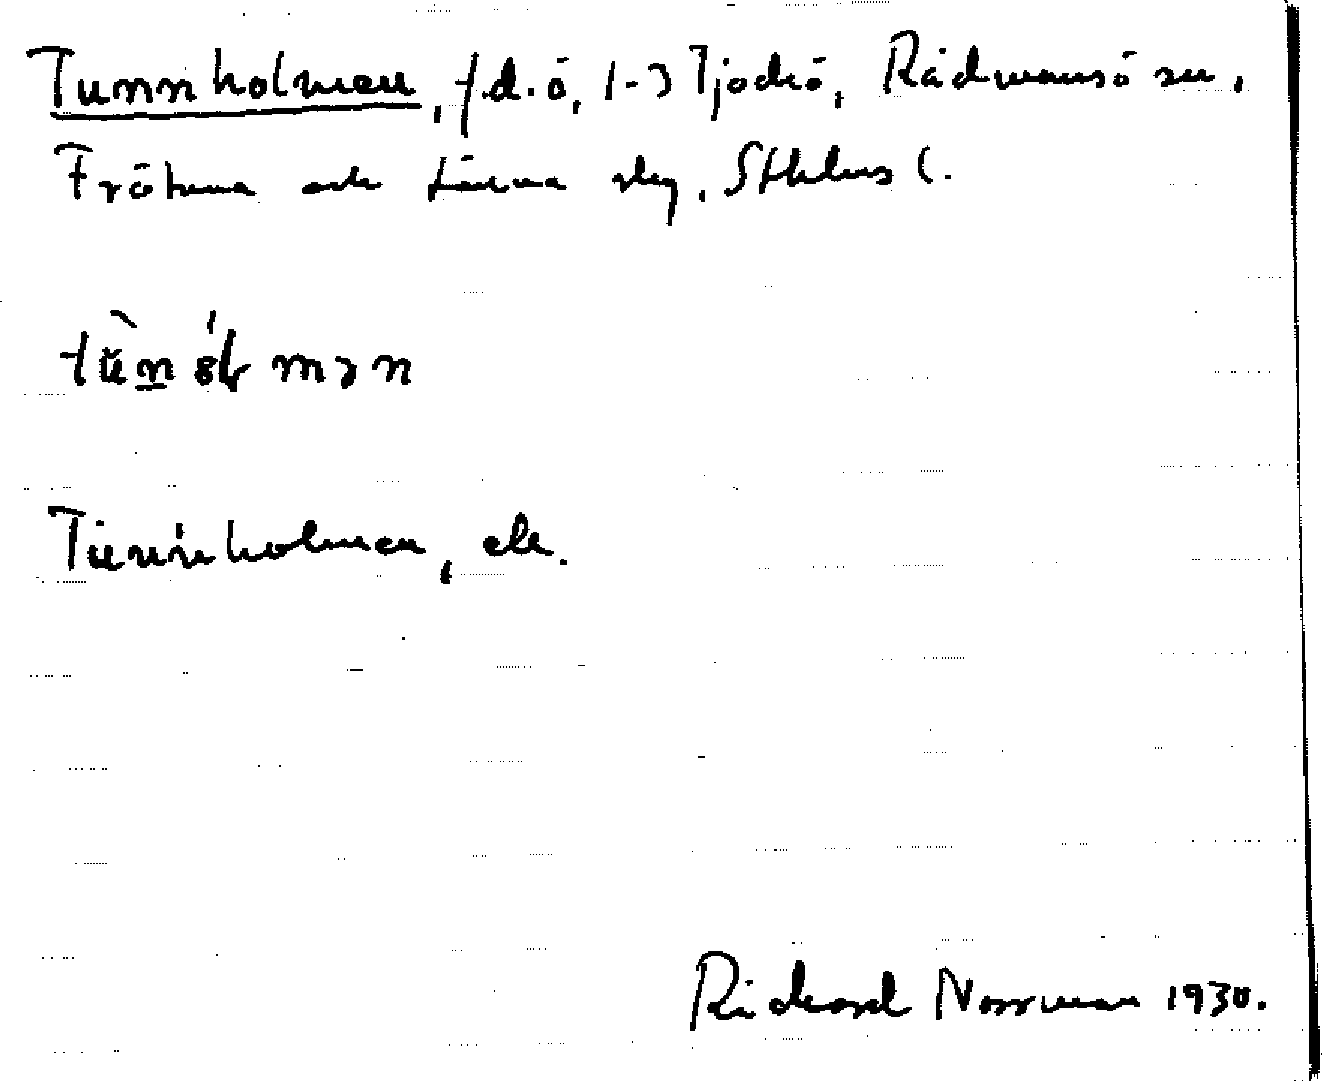 Tunnholmen, f.d. ö, 1-3 Tjockö, Rådmansö sn,
Frötuna och Länna slg, Sthlms l.
tùn ól mən
Tunnholmen, ek.
Rickard Norrman 1930.